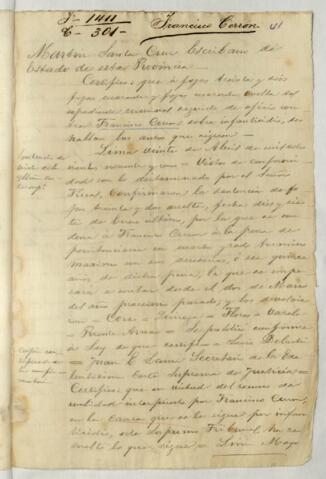 Fº - 1411
C - 301 -
Francisco Ceron
Martin Santa Cruz Escribano de
Estado de esta Provincia -
Certifico: que á fojas treinta y dos
fojas cuarenta y fojas cuarenta vuelta del
espediente criminal seguido de oficio con
tra Francisco Ceron sobre infanticidio, se
hallan los autos que siguen -
Lima veinte de Abril de mil ocho
cientos noventa y uno = Vistos: de conformi
dad con lo dictaminado por el Señor
Fiscal; Confirmaron la sentencia de fo
jas treinta y dos vuelta, fecha diez y sie
te de
último, por la que se con
dena á Francisco Ceron á la pena de
penitenciaria en cuarto grado termino
maximo con sus accesorias, ó sea quince
años de dicha pena, la que se empe
zará á contar desde el dos de Marzo
del año proximo pasado; y los devolvie
ron =
Flores =
Puente Arnao = Se publicó conforme
á ley de que certifico =
Juan E. Lama Secretario de la Ex
celentisima Corte Suprema de Justicia =
Certifico: que en virtud del recurso de
nulidad interpuesto por Francisco Ceron,
en la causa que se le sigue por infan
ticidio, este Supremo Tribunal ha re
suelto lo que sigue = Lima Mayo